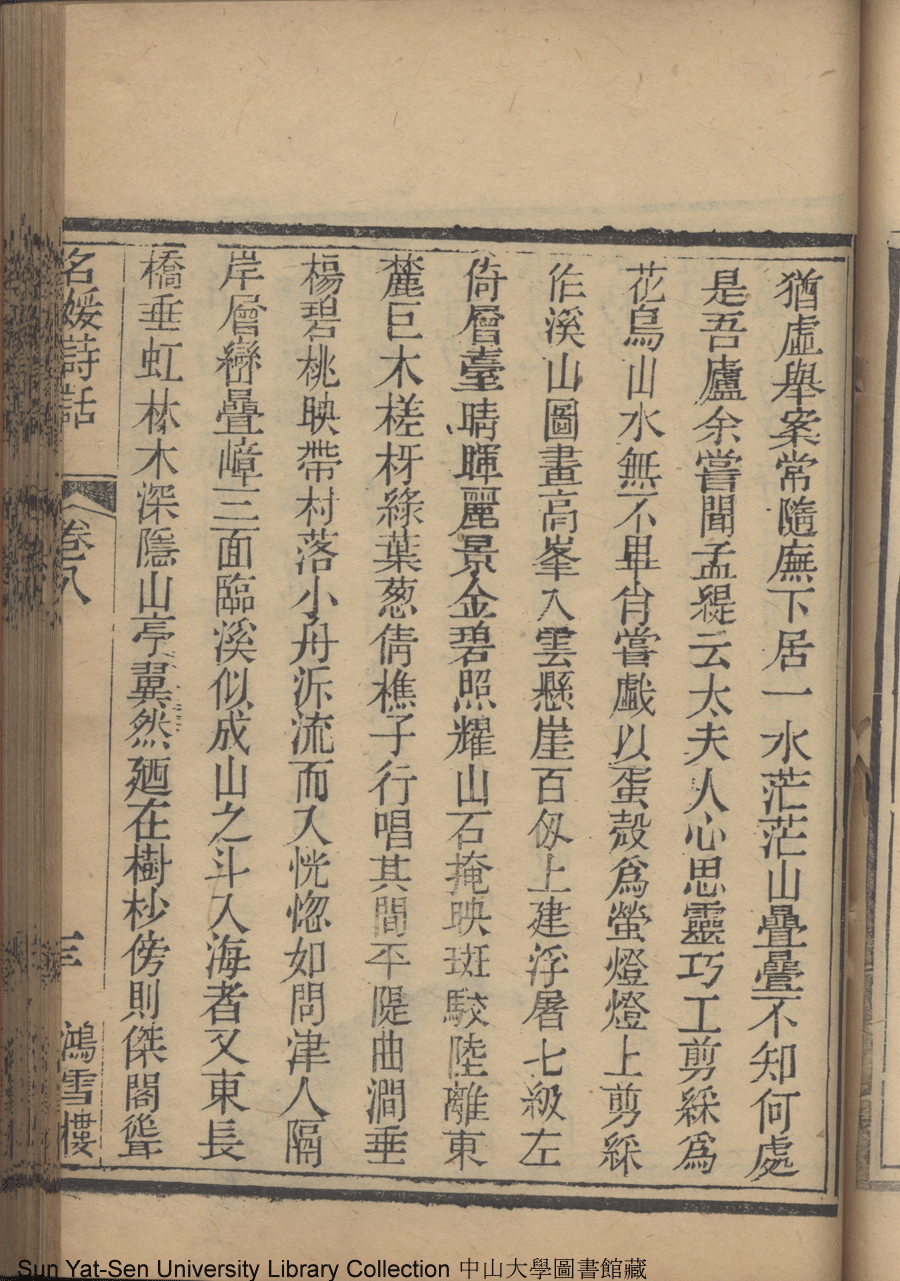 猶虛舉案常隨廡下居一水茫茫山疊疊不知何處
是吾廬余嘗聞孟緹云太夫人心思靈巧工剪綵爲
花鳥山水無不畢肖嘗戲以蛋殼爲螢燈燈上剪綵
作溪山圖畫高峯入雲懸崖百仭上建浮屠七級左
倚層臺晴暉麗景金碧照耀山石掩映斑駮陸離東
麓巨木槎枒綠葉葱倩樵子行唱其間平隄曲澗垂
楊碧桃映帶村落小舟泝流而入恍惚如問津人隔
岸層巒疊嶂三面臨溪似成山之斗入海者又東長
橋垂虹林木深隱山亭翼然廼在樹杪傍則傑閣聳
名媛詩話 卷八 三 鴻雪樓
Sun Yat-Sen University Library Collection 中山大學圖書館藏